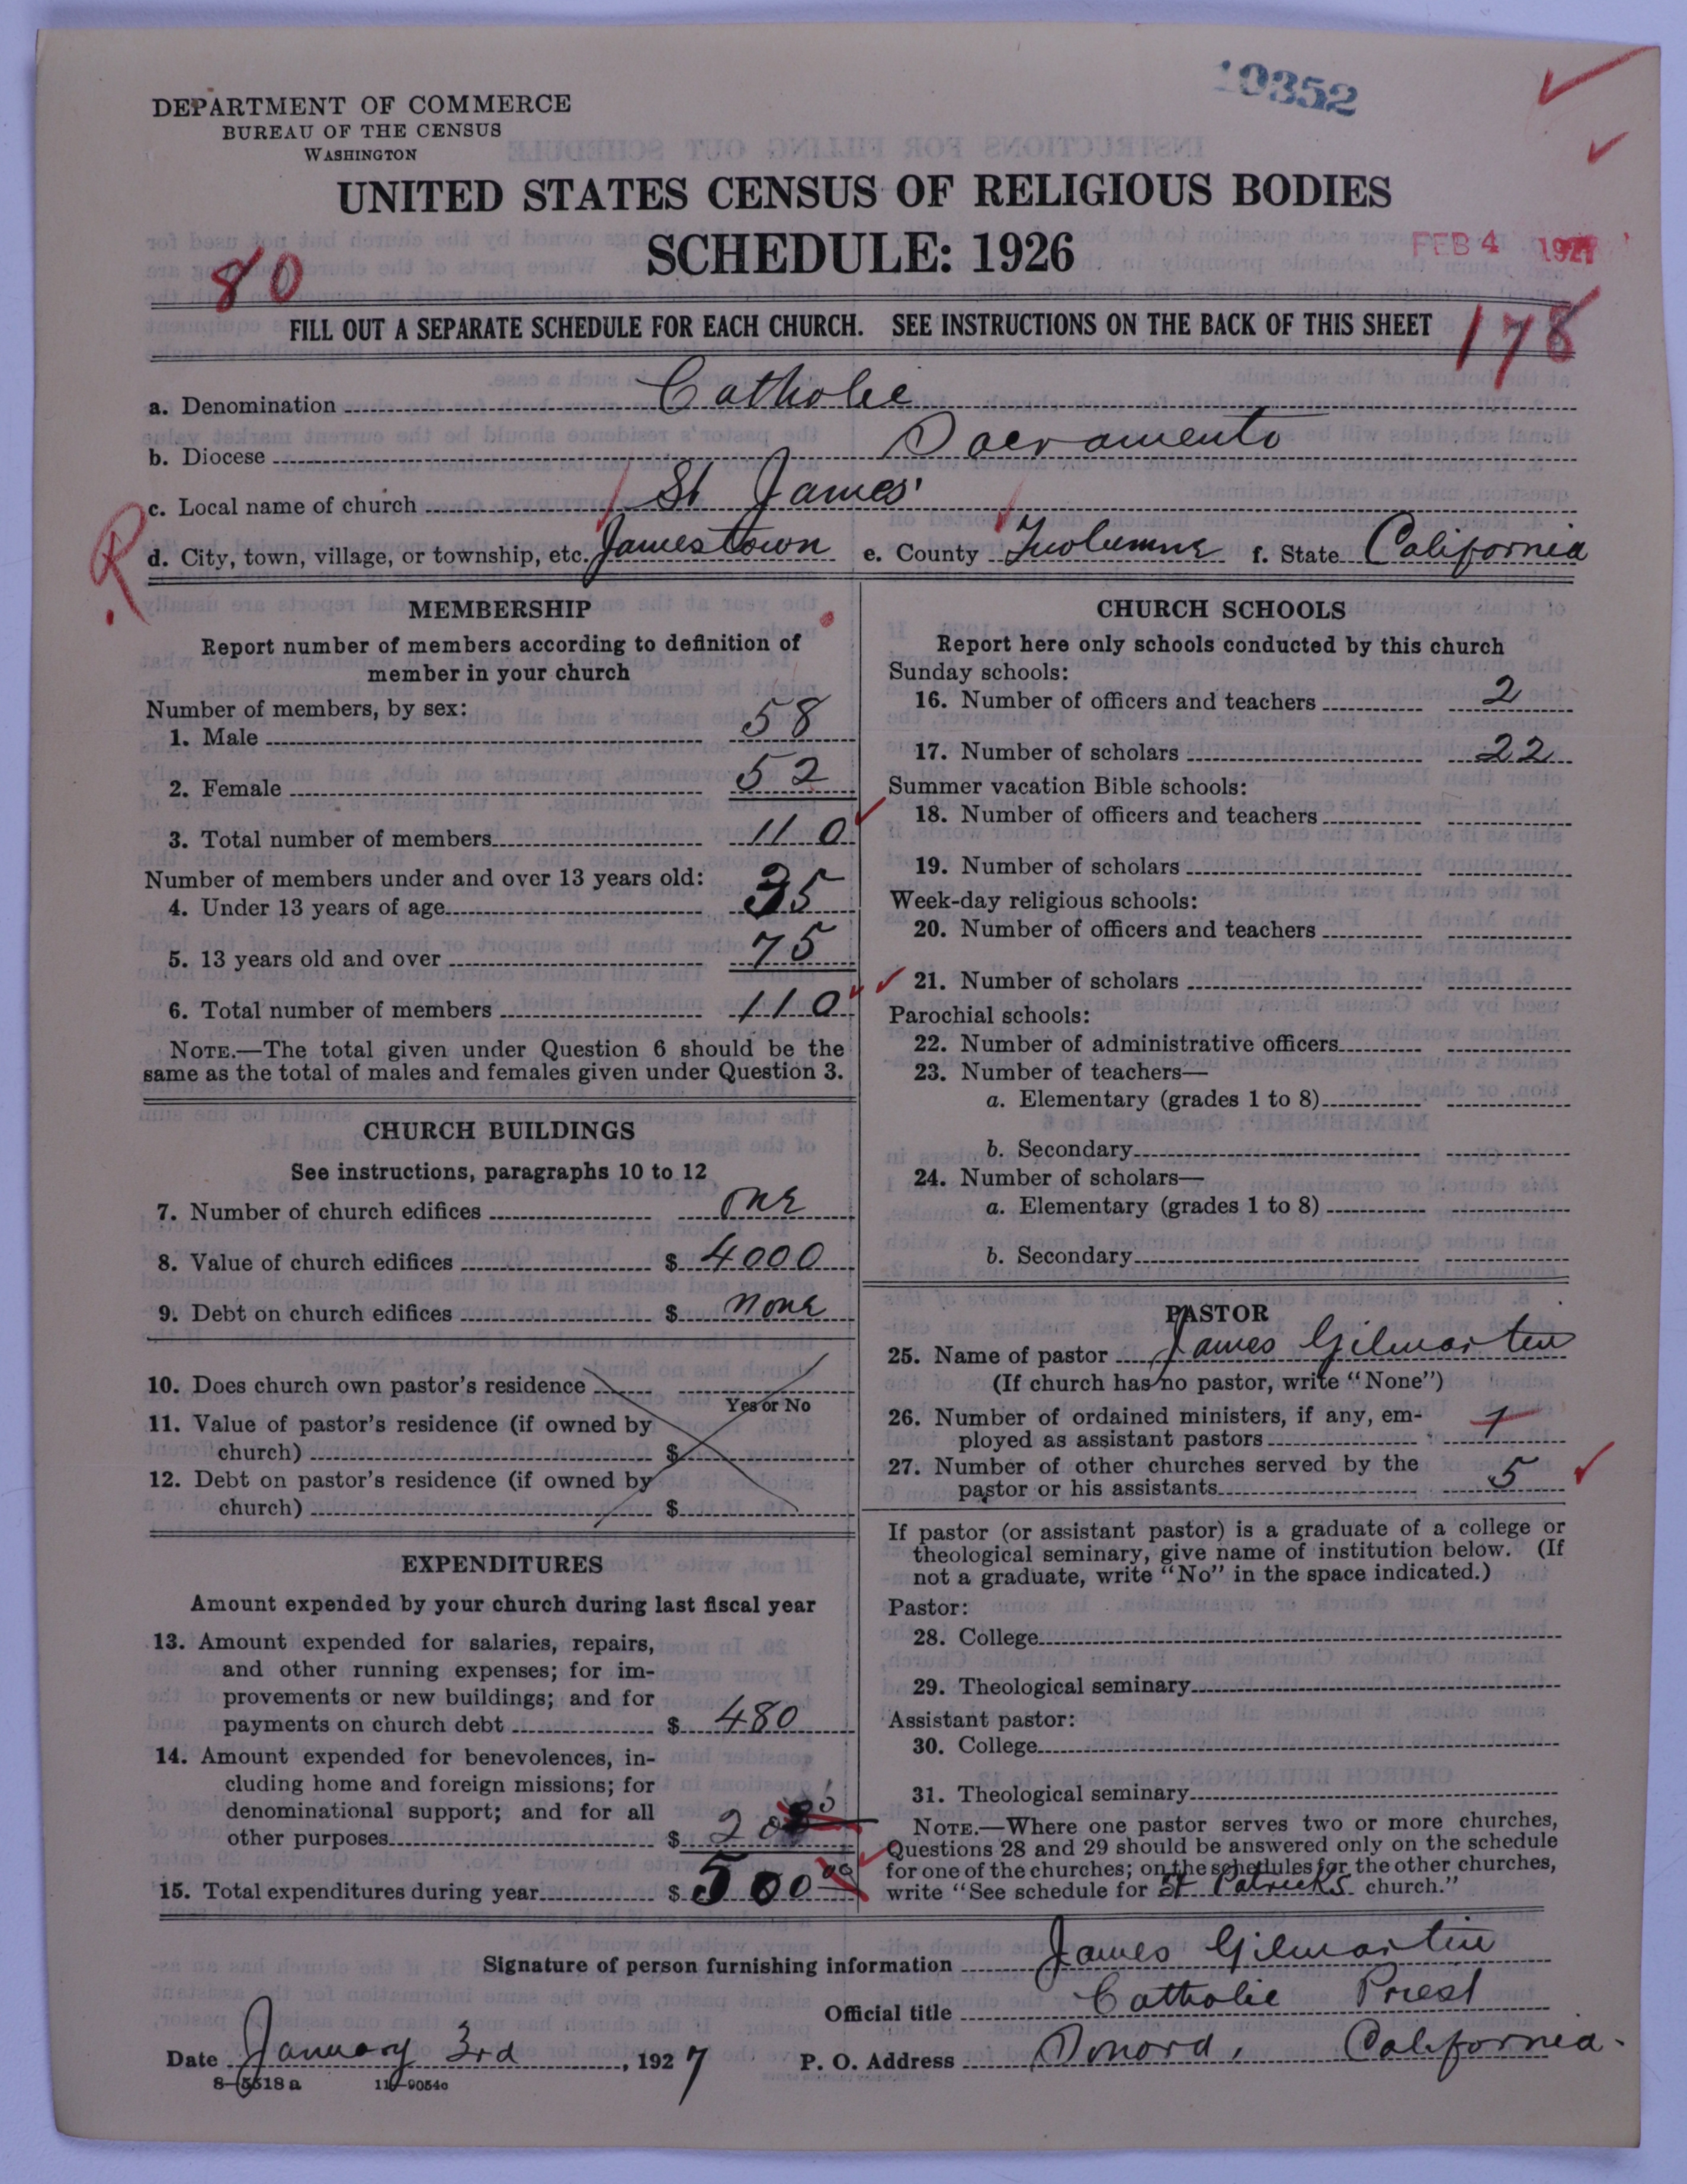 10352
DEPARTMENT OF COMMERCE
BUREAU OF THE CENSUS
WASHINGTON
UNITED STATES CENSUS OF RELIGIOUS BODIES
SCHEDULE: 1926
FEB 4 1927
80
FILL OUT A SEPARATE SCHEDULE FOR EACH CHURCH. SEE INSTRUCTIONS ON THE BACK OF THIS SHEET
178
a. Denomination Catholic
b. Diocese Sacramento
c. Local name of church St James'
R
d. City, town, village, or township, etc. Jamestown e. County Tuolumne f. State California
MEMBERSHIP
Report number of members according to definition of
member in your church
Number of members, by sex:
1. Male 58
2. Female 52
3. Total number of members 110
Number of members under and over 13 years old:
4. Under 13 years of age 35
5. 13 years old and over 75
6. Total number of members 110
NOTE.—The total given under Question 6 should be the
same as the total of males and females given under Question 3.
CHURCH BUILDINGS
See instructions, paragraphs 10 to 12
7. Number of church edifices one
8. Value of church edifices $ 4000
9. Debt on church edifices $ none
10. Does church own pastor's residence
Yes or No
11. Value of pastor's residence (if owned by
church) $
12. Debt on pastor's residence (if owned by
church) $
EXPENDITURES
Amount expended by your church during last fiscal year
13. Amount expended for salaries, repairs,
and other running expenses; for im-
provements or new buildings; and for
payments on church debt $ 480
14. Amount expended for benevolences, in-
cluding home and foreign missions; for
denominational support; and for all
other purposes $ 20
15. Total expenditures during year $ 500
CHURCH SCHOOLS
Report here only schools conducted by this church
Sunday schools:
16. Number of officers and teachers 2
17. Number of scholars 22
Summer vacation Bible schools:
18. Number of officers and teachers
19. Number of scholars
Week-day religious schools:
20. Number of officers and teachers
21. Number of scholars
Parochial schools:
22. Number of administrative officers
23. Number of teachers—
a. Elementary (grades 1 to 8)
b. Secondary
24. Number of scholars—
a. Elementary (grades 1 to 8)
b. Secondary
PASTOR
25. Name of pastor James Gilmartin
(If church has no pastor, write "None")
26. Number of ordained ministers, if any, em-
ployed as assistant pastors 1
27. Number of other churches served by the
pastor or his assistants 5
If pastor (or assistant pastor) is a graduate of a college or
theological seminary, give name of institution below. (If
not a graduate, write "No" in the space indicated.)
Pastor:
28. College
29. Theological seminary
Assistant pastor:
30. College
31. Theological seminary
NOTE.—Where one pastor serves two or more churches,
Questions 28 and 29 should be answered only on the schedule
for one of the churches; on the schedules for the other churches,
write "See schedule for St Patricks church."
Signature of person furnishing information James Gilmartin
Official title Catholic Priest
Date January 3rd, 1927 P. O. Address Sonora, California.
8-5518a 11-9054c